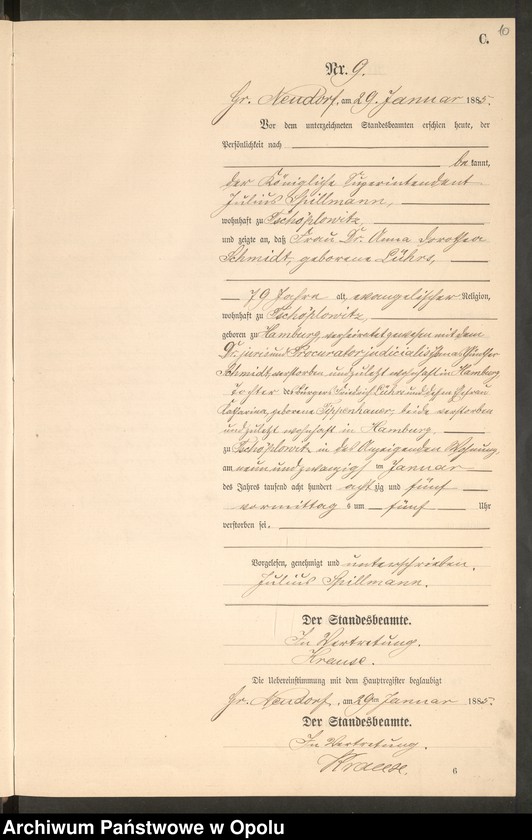 10
C.
Nr. 9.
Gr. Neudorf, am 29. Januar 1885.
Vor dem unterzeichneten Standesbeamten erschien heute, der
Persönlichkeit nach
be kannt,
der Königliche Superintendent
Julius Spillmann,
wohnhaft zu Tschöplowitz,
und zeigte an, daß Frau Dr. Anna Dorothea
Schmidt, geborene Lührs,
79 Jahre alt, evangelischer Religion,
wohnhaft zu Tschöplowitz,
geboren zu Hamburg, verheiratet gewesen mit dem
Dr. juris und Procurator judicialis Günther
Schmidt, verstorben und zuletzt wohnhaft in Hamburg
Tochter des Bürgers Friedrich Lührs und dessen Ehefrau
Katharina, geborene beide verstorben
und zuletzt wohnhaft in Hamburg
zu Tschöplowitz in des Anzeigenden Wohnung,
am neun und zwanzigsten Januar
des Jahres tausend acht hundert achtzig und fünf
vormittags um fünf Uhr
verstorben sei.
Vorgelesen, genehmigt und unterschrieben.
Julius Spillmann.
Der Standesbeamte.
In Vertretung.
Krause.
Die Uebereinstimmung mit dem Hauptregister beglaubigt
Gr. Neudorf, am 29ten Januar 1885.
Der Standesbeamte.
In Vertretung.
Krause.
6
Archiwum Państwowe w Opolu